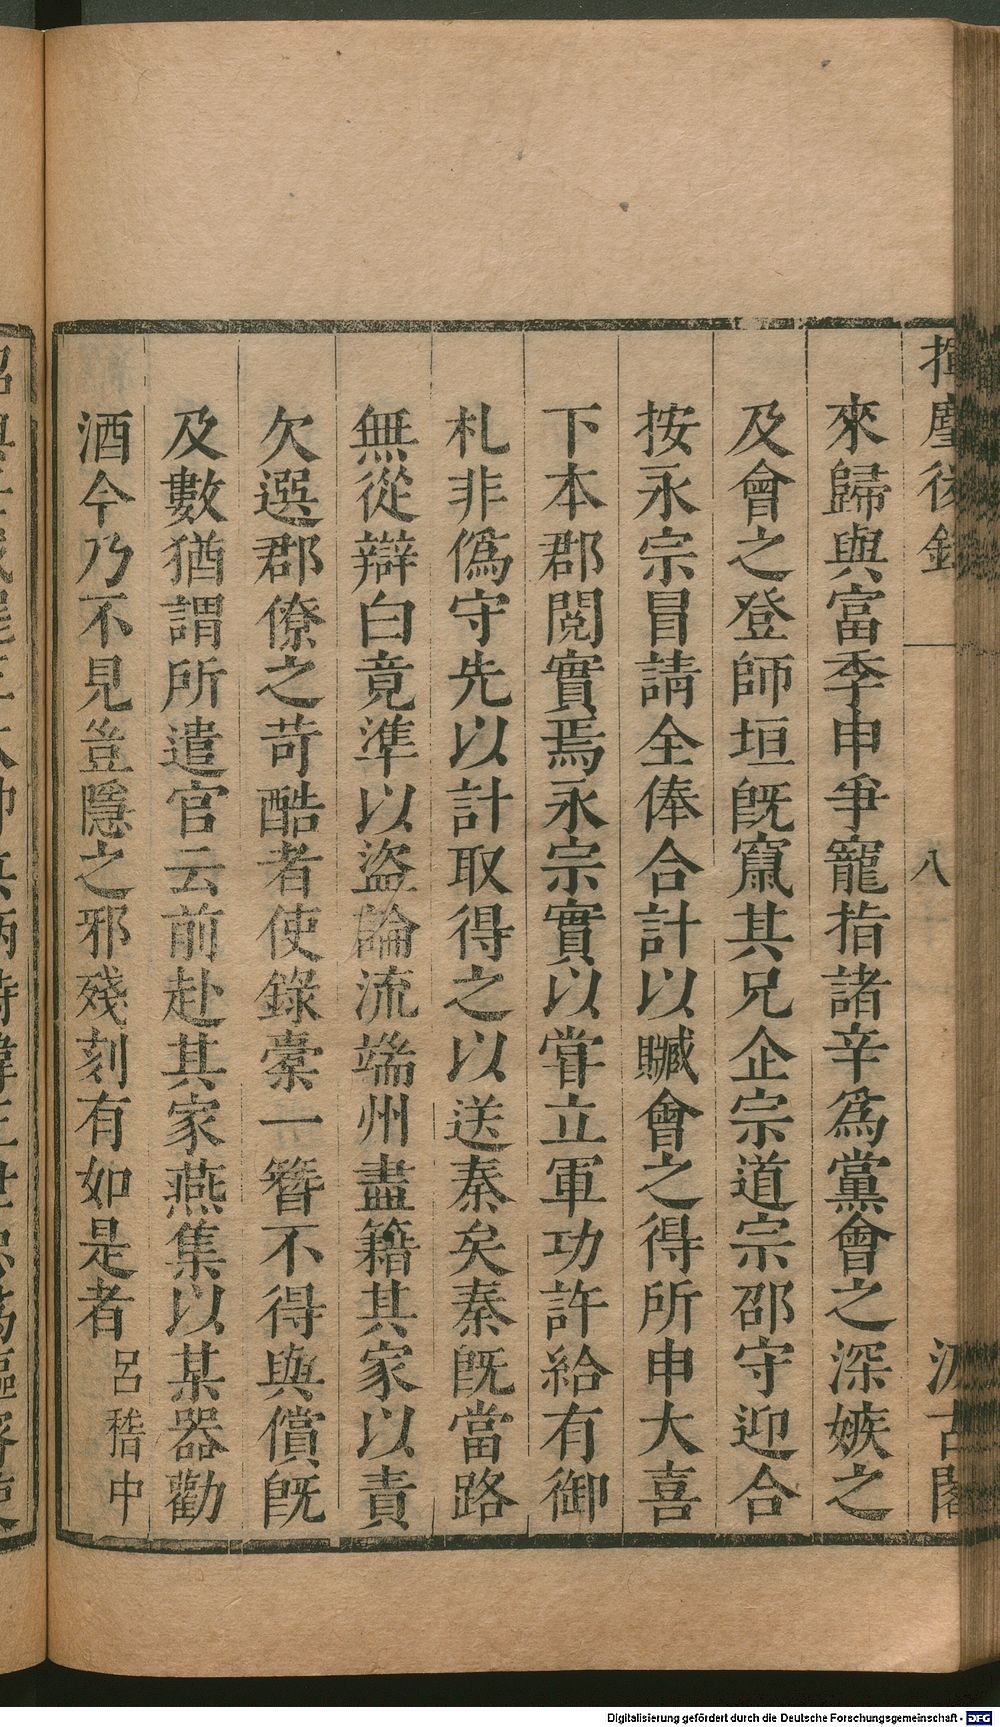 揮麈後錄
八
汲古閣
來歸與富季申爭寵指諸辛爲黨會之深嫉之
及會之登師垣旣竄其兄企宗道宗邵守迎合
按永宗冒請全俸合計以贓會之得所申大喜
下本郡閱實焉永宗實以嘗立軍功許給有御
札非僞守先以計取得之以送秦矣秦旣當路
無從辯白竟準以盜論流端州盡籍其家以責
欠選郡僚之苛酷者使錄槖一簪不得與償旣
及數猶謂所遣官云前赴其家燕集以某器勸
酒今乃不見豈隱之邪殘刻有如是者呂稽中
Digitalisierung gefördert durch die Deutsche Forschungsgemeinschaft - DFG